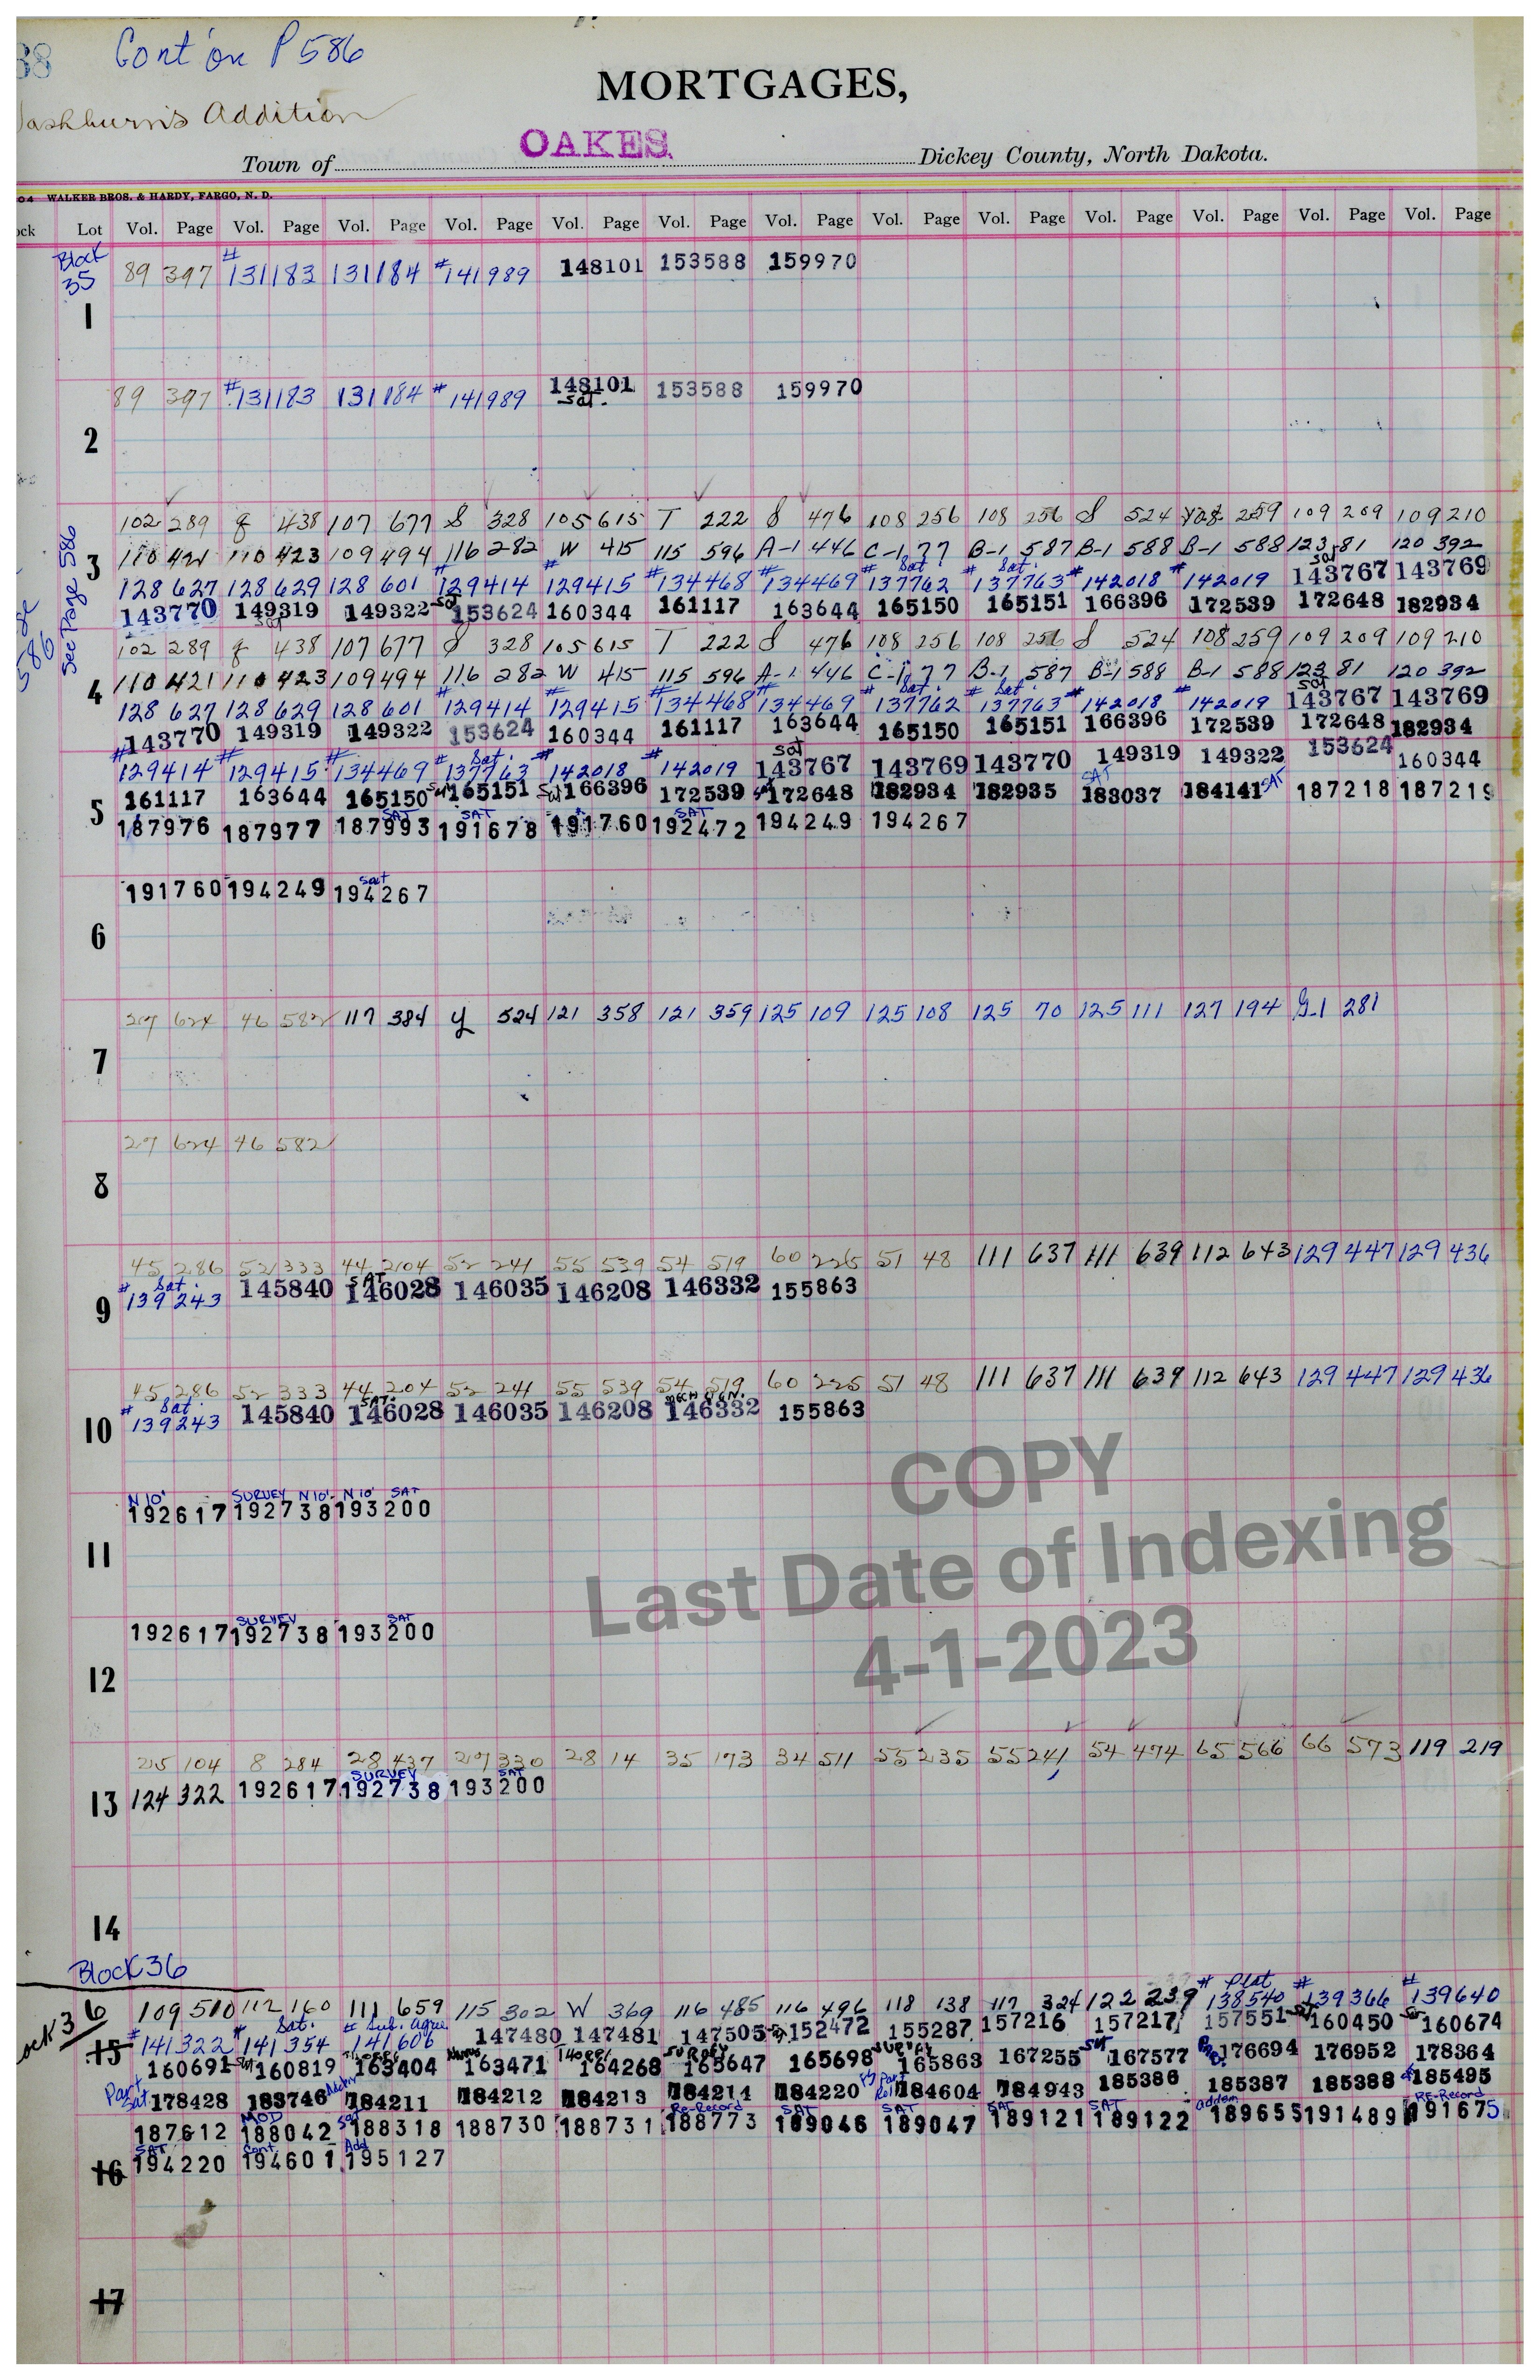 38 Cont'on P 586
MORTGAGES,
Washburn's Addition
Town of OAKES Dickey County, North Dakota.
04 WALKER BROS. & HARDY, FARGO, N. D.
ock Lot Vol. Page Vol. Page Vol. Page Vol. Page Vol. Page Vol. Page Vol. Page Vol. Page Vol. Page Vol. Page Vol. Page Vol. Page Vol. Page
Block 35
89 397 #131183 131184 #141989 148101 153588 159970
1
89 397 #131183 131184 #141989 148101 153588 159970
sat.
2
See Page 586
102 289 438 107 677 S 328 105 615 T 222 S 476 108 256 108 256 S 524 108 259 109 209 109 210
3
110 421 110 423 109 494 116 282 W 415 115 596 A-1 446 C-1 77 B-1 587 B-1 588 B-1 588 123 81 120 392
# # # # Sat. # Sat. # # sat
128 627 128 629 128 601 129414 129415 134468 134469 137762 137763 142018 142019 143767 143769
143770 149319 149322 sat 153624 160344 161117 163644 165150 165151 166396 172539 172648 182934
sat
102 289 438 107 677 S 328 105 615 T 222 S 476 108 256 108 256 S 524 108 259 109 209 109 210
4
110 421 110 423 109 494 116 282 W 415 115 596 A-1 446 C-1 77 B-1 587 B-1 588 B-1 588 123 81 120 392
# # # # Sat. # Sat. # # sat
128 627 128 629 128 601 129414 129415 134468 134469 137762 137763 142018 142019 143767 143769
143770 149319 149322 153624 160344 161117 163644 165150 165151 166396 172539 172648 182934
# # # # Sat. # # sat
129414 129415 134469 137763 142018 142019 143767 143769 143770 149319 149322 153624 160344
5
161117 163644 165150 sat 165151 sat 166396 172539 sat 172648 182934 182935 SAT 183037 184141 SAT 187218 187219
SAT SAT SAT
187976 187977 187993 191678 191760 192472 194249 194267
sat
191760 194249 194267
6
27 624 46 582 117 384 y 524 121 358 121 359 125 109 125 108 125 70 125 111 127 194 G-1 281
7
27 624 46 582
8
45 286 52 333 44 204 52 241 55 539 54 519 60 225 51 48 111 637 111 639 112 643 129 447 129 436
# Sat. SAT
139243 145840 146028 146035 146208 146332 155863
9
45 286 52 333 44 204 52 241 55 539 54 519 60 225 51 48 111 637 111 639 112 643 129 447 129 436
# Sat. SAT
139243 145840 146028 146035 146208 146332 155863
10
N 10' SURVEY N10' N10' SAT
192617 192738 193200
11
SURVEY SAT
192617 192738 193200
12
COPY
Last Date of Indexing
4-1-2023
25 104 8 284 28 437 27 330 28 14 35 173 34 511 55 235 55 241 54 474 65 566 66 573 119 219
SURVEY SAT
124 322 192617 192738 193200
13
14
Block 36
ock 36
# Plat # #
109 510 112 160 111 659 115 302 W 369 116 485 116 496 118 138 117 324 122 239 138540 139366 139640
# # Sat. # Sub. Agree
15
141322 141354 141606 147480 147481 147505 152472 155287 157216 157217 157551 160450 160674
SURVEY SURVEY
160691 sat 160819 163404 163471 164268 165647 165698 165863 167255 sat 167577 176694 176952 178364
Part Sat. 178428 183746 184211 184212 184213 184214 184220 Part Rel 184604 184943 185386 185387 185388 185495
MOD sat Re-Record SAT SAT SAT SAT addem RE-Record
187612 188042 188318 188730 188731 188773 189046 189047 189121 189122 189655 191489 191675
SAT Cont. Add
16
194220 194601 195127
17